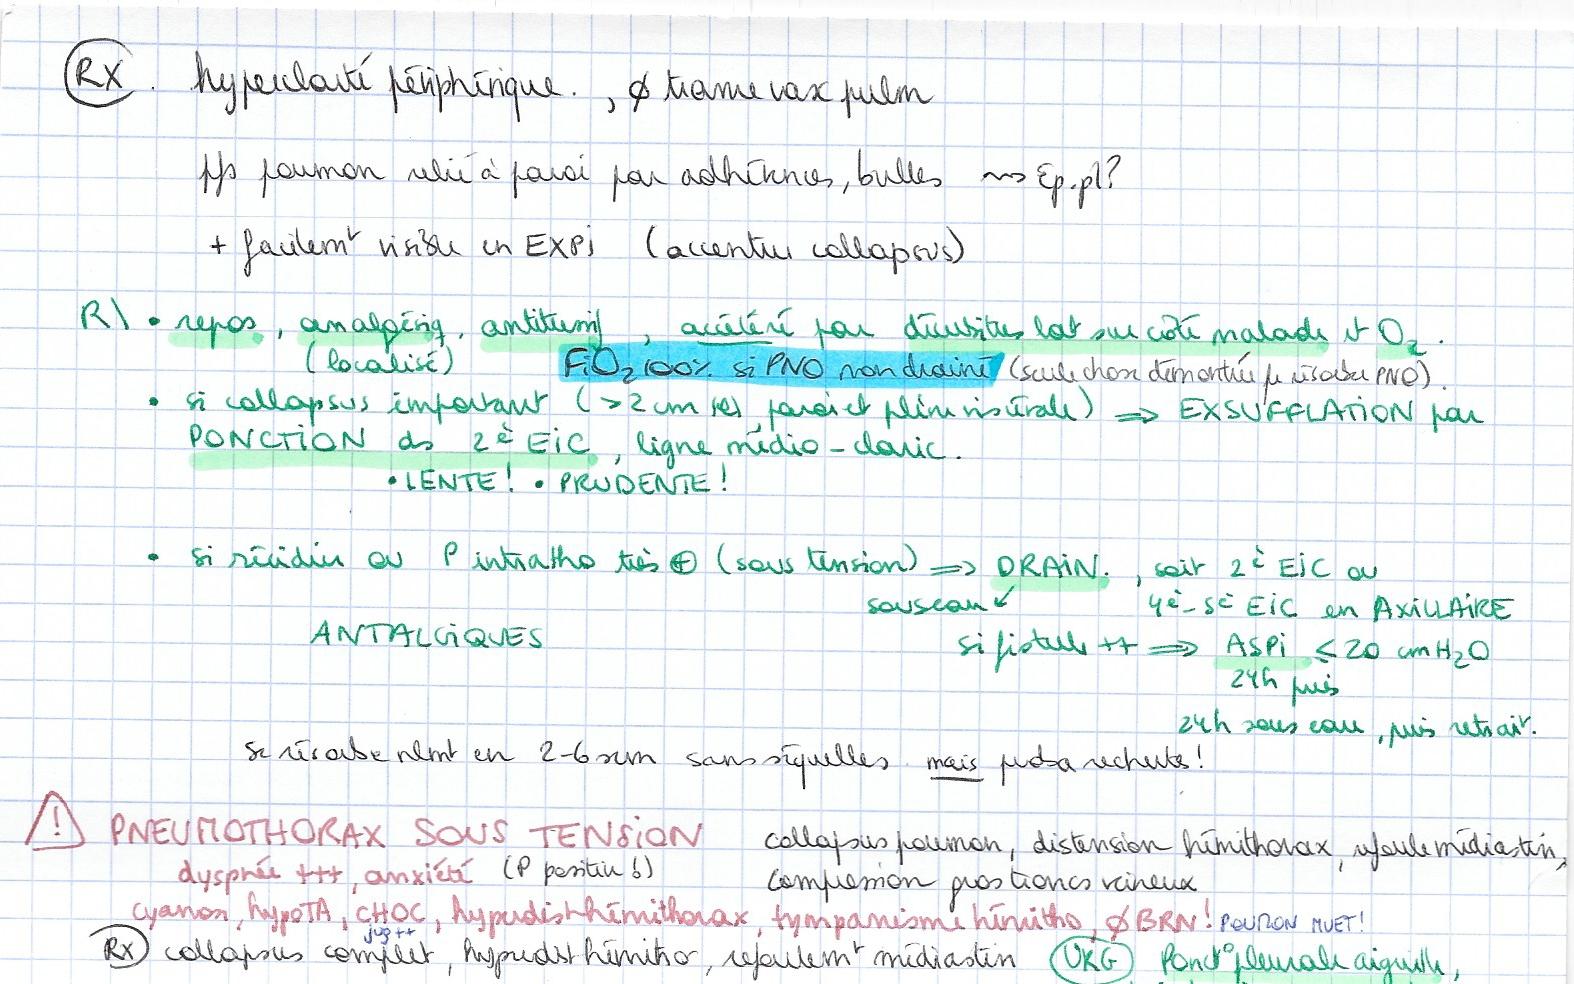 RX. hyperclarté périphérique., ∅ trame vax pulm
pfs poumon relié à paroi par adhérences, bulles ⇝ Ep. pl?
+ facilemt visible en EXPi (accentue collapsus)
R\ • repos, analgésiq, antitussif, accéléré par décubitus lat sur côté malade et O2.
(localisé) FiO2 100% si PNO non drainé (seule chose démontrée pr résorber PNO).
• si collapsus important (>2cm paroi et plèvre viscérale) ⇒ EXSUFFLATION par
PONCTION ds 2è EiC, ligne médio-clavic.
• LENTE! • PRUDENTE!
• si récidive ou P intratho très ⊕ (sous tension) ⇒ DRAIN., soit 2è EiC ou
sous eau ↙ 4è-5è EiC en AXiLLAIRE
ANTALGiQUES si fistule ++ ⇒ ASPi ≤ 20 cmH2O
24h puis
24h sous eau, puis retrait.
se résorbe nlmt en 2-6 sem sans séquelles mais proba rechute!
! PNEUMOTHORAX SOUS TENSiON collapsus poumon, distension hémithorax, refoule médiastin,
dyspnée +++, anxiété (P positive!) compression gros troncs veineux
cyanose, hypoTA, CHOC, hyperdist hémithorax, tympanisme hémitho, ∅ BRN! POUMON MUET!
jug ++
RX collapsus complet, hyperdist hémitho, refoulemt médiastin URG Ponct° pleurale aiguille,